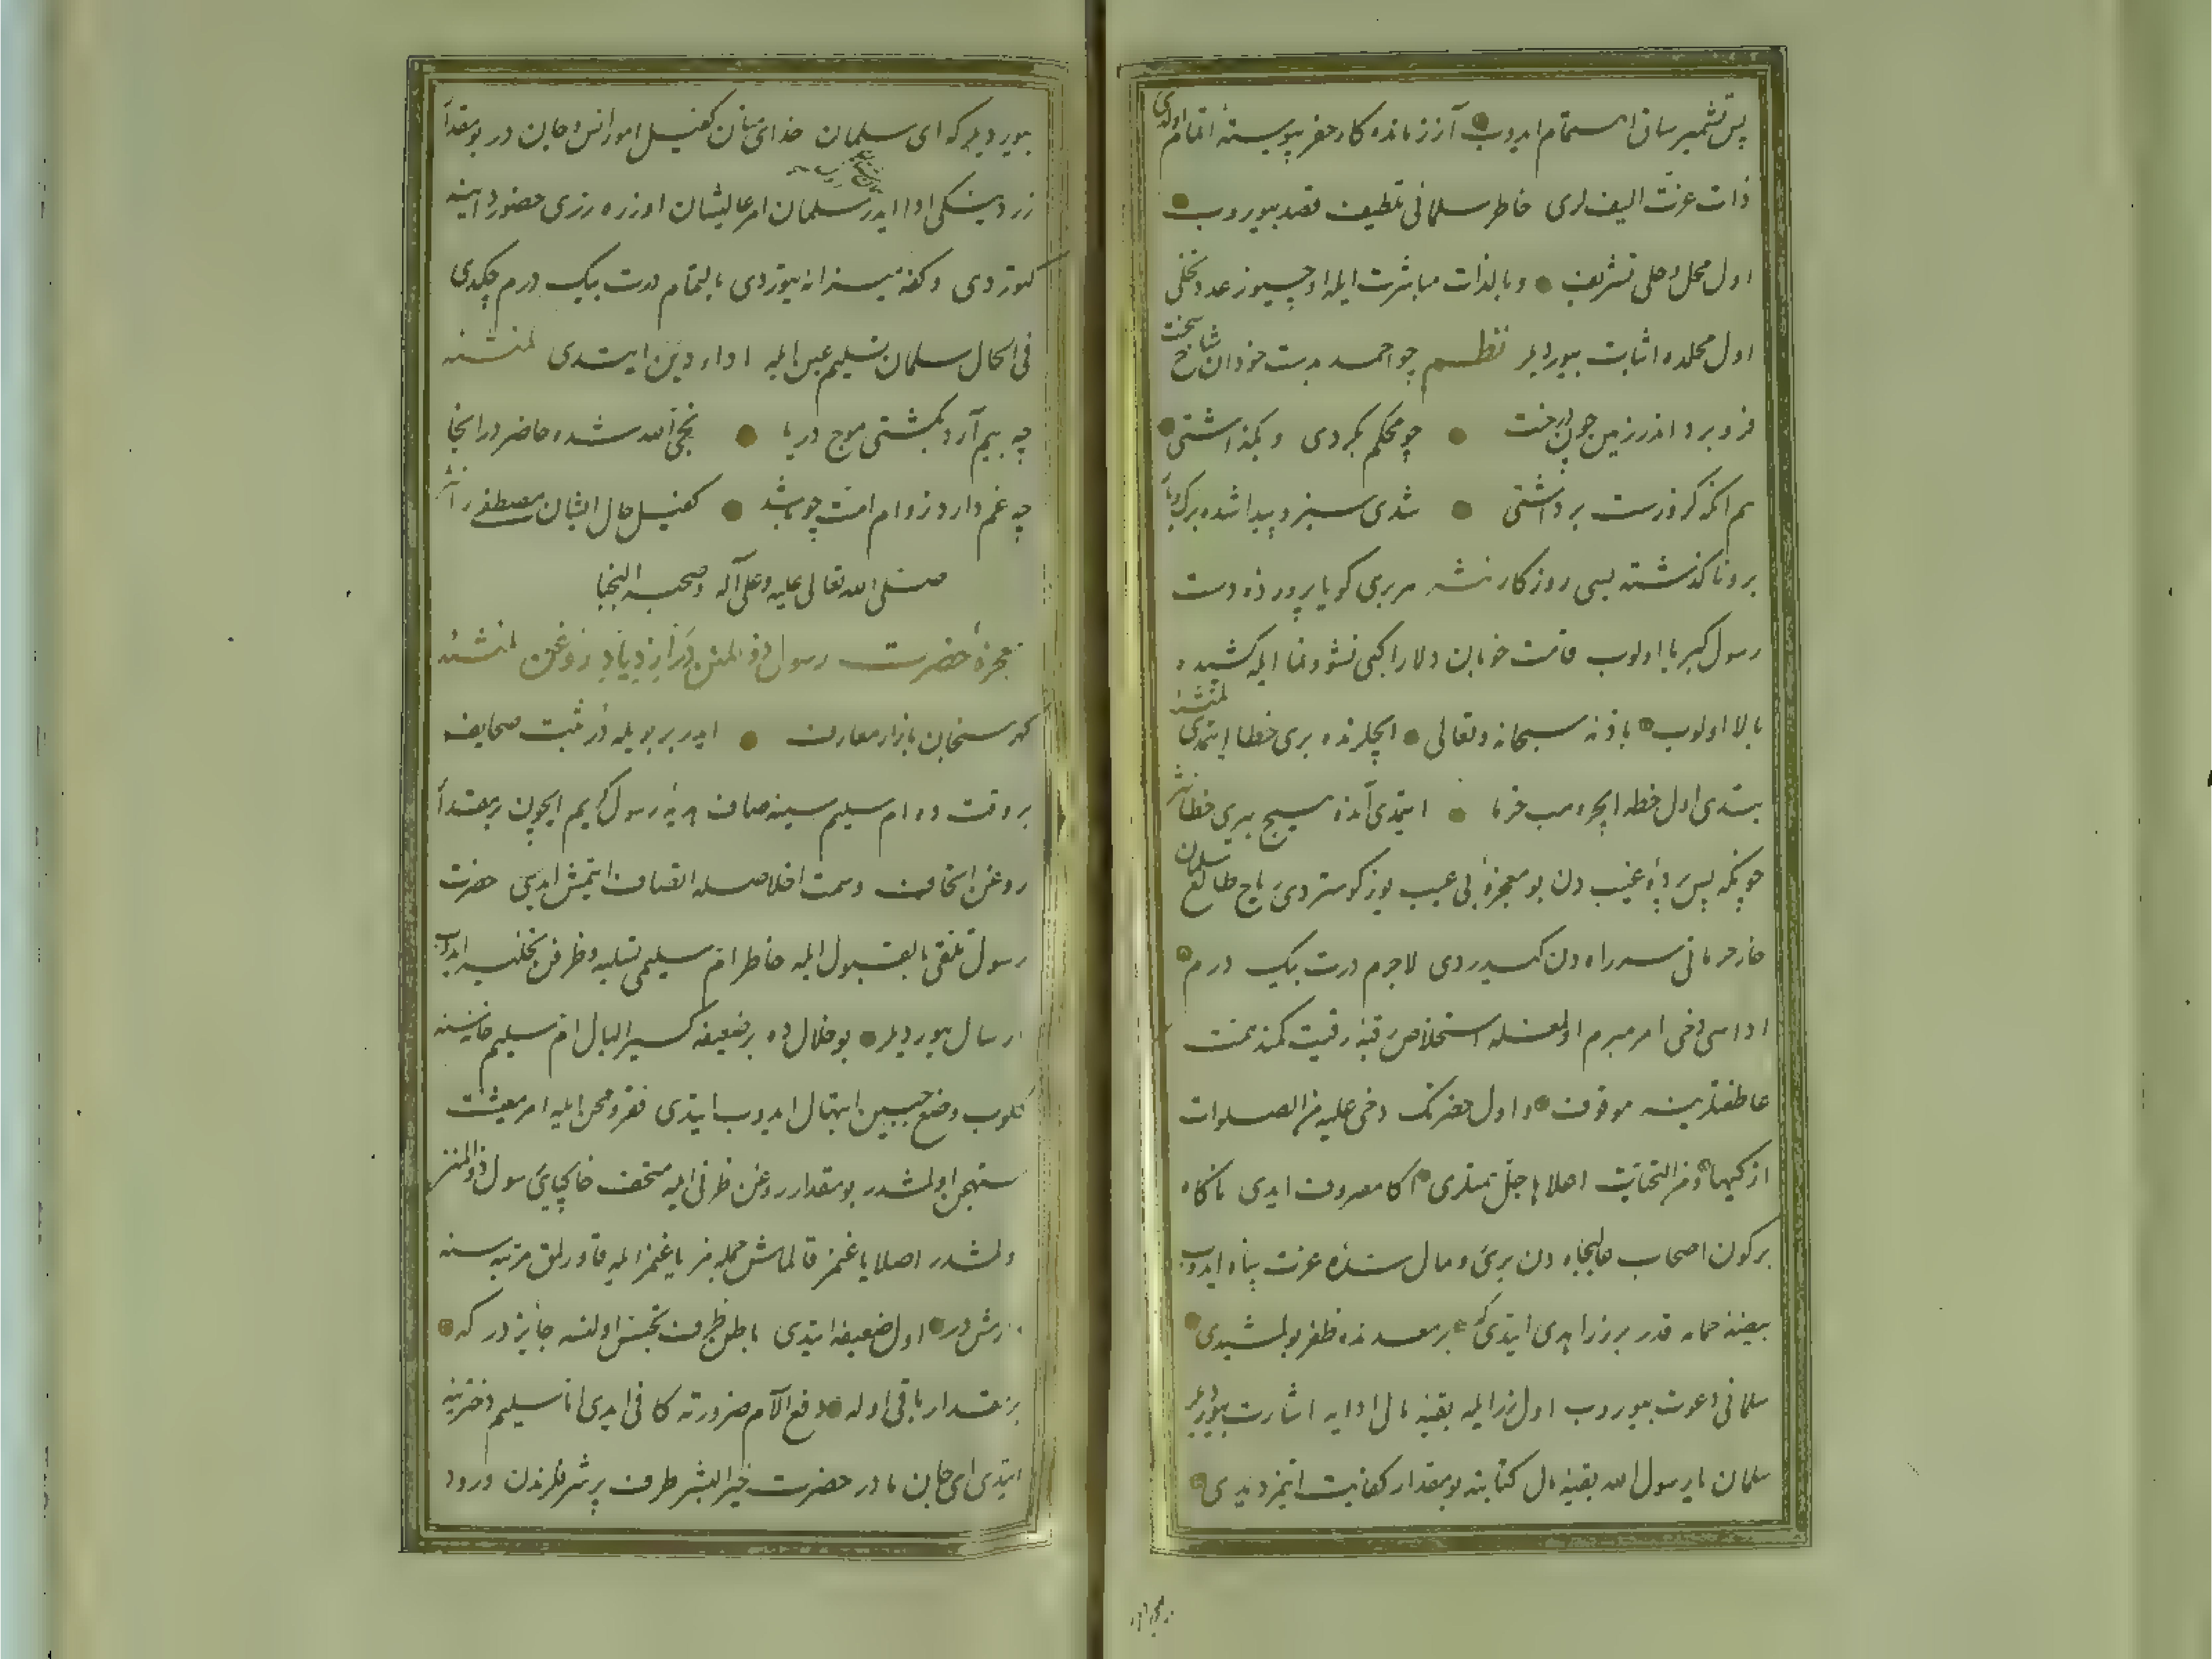 پس تشمیر ساق اهتمام ایدوب آز زمانده کار حفر پیوسته اتمام اولدی
ذات عزت الیفلری خاطر سلمانی تلطیف قصد بیوروب
اول محل و حلی تشریف و بالذات مباشرت ایله اوچیوز عدد نخلی
اول محلده اثابت بیوردیلر نظم چو احمد بدست خود آن شاخ سخت
فرو برد اندر زمین چون درخت چو محکم بکردی و بگذاشتی
شدی سبز و پیدا شده برک و بار
برو نا کذشته بسی روزکار
رسول کبریا اولوب قامت خوبان دلارا کبی نشو و نما ایله کشیده
بالا اولوب باذنه سبحانه و تعالی ایچلرنده بری خطا ایتمدی لمنشئه
بتدی اول خطه ایچره هب خرما ایتمدی آنده هیچ بیری خطا
چونکه پس پردهٔ غیب دن بو معجزهٔ بی عیب یوز کوستردی طالع سلمان
خار حرمانی سر راه دن کسیردی لاجرم درت بیک درم
اداسی دخی امر مبرم اولمغله استخلاص رقبهٔ رقیت کمند همت
عاطفتلرینه موقوف و اول حضرتک دخی علیه من الصلوات
ازکیها و من التحیات اجل همتلری اکا مصروف ایدی ناکاه
برکون اصحاب عالیجاه دن بری
بیضهٔ حمامه قدر بر زر ایتدی که بر معدنده ظفر بولمشیدی
سلمانی دعوت بیوروب اول زر ایله بقیهٔ مال ادایه اشارت بیوردیلر
سلمان یا رسول الله بقیهٔ مال کتابته بو مقدار کفایت ایتمز دیدی
بیوردیلر که ای سلمان خدای منان کفیل امور انس و جان در بو مقدار
زر دینکی ادا ایدر سلمان امر عالیشان اوزره زری حضور داینه
کوتردی و کفهٔ میزانه یتوردی بالتمام درت بیک درم چکدی
فی الحال سلمان تسلیم عین ایله اداء دین ایتدی لمنشئه
چه بیم آرد بکشتی موج دریا نجی الله شده حاضر در آنجا
چه غم دارد ز وام امت چو باشد کفیل حال ایشان مصطفی را
صلی الله تعالی علیه و علی آله و صحبه النجبا
معجزهٔ حضرت رسول ذو المنن در ازدیاد روغن لمنشئه
کهر سنجان بازار معارف ایدرلر بویله در ثبت صحایف
بر وقت ده ام سلیم سینه صاف هدیهٔ رسول کریم ایچون بر مقدار
روغن اتحاف و سمت اخلاصله اتصاف ایتمش ایدی حضرت
رسول تلقی بالقبول ایله خاطر ام سلیمی تسلیه و ظرفن تخلیه ایدوب
ارسال بیوردیلر بو خلال ده بر ضعیفه کسیر البال ام سلیم خانه سنه
کلوب وضع جبین ابتهال ایدوب ایتدی فقر و محن ایله امر معیشت
مستهجن اولمشدر بو مقدار روغن ظرفی ایله متحف خاکپای رسول ذو المنن
اولمشدر اصلا یاغمز قالمامش
وارمش در اول ضعیفه ایتدی باطن ظرف تجسس اولنسه جایز در که
بر مقدار باقی اوله دفع آلام ضرورته کافی ایدی ام سلیم دخترینه
ایتدی ای جان مادر حضرت خیر البشر طرف پر شرفلرندن ورود